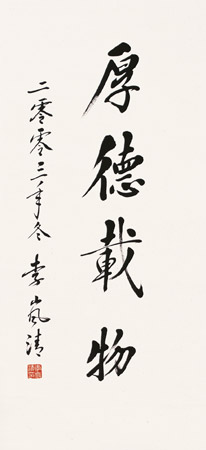 厚德載物
二零零三年冬 李嵐清